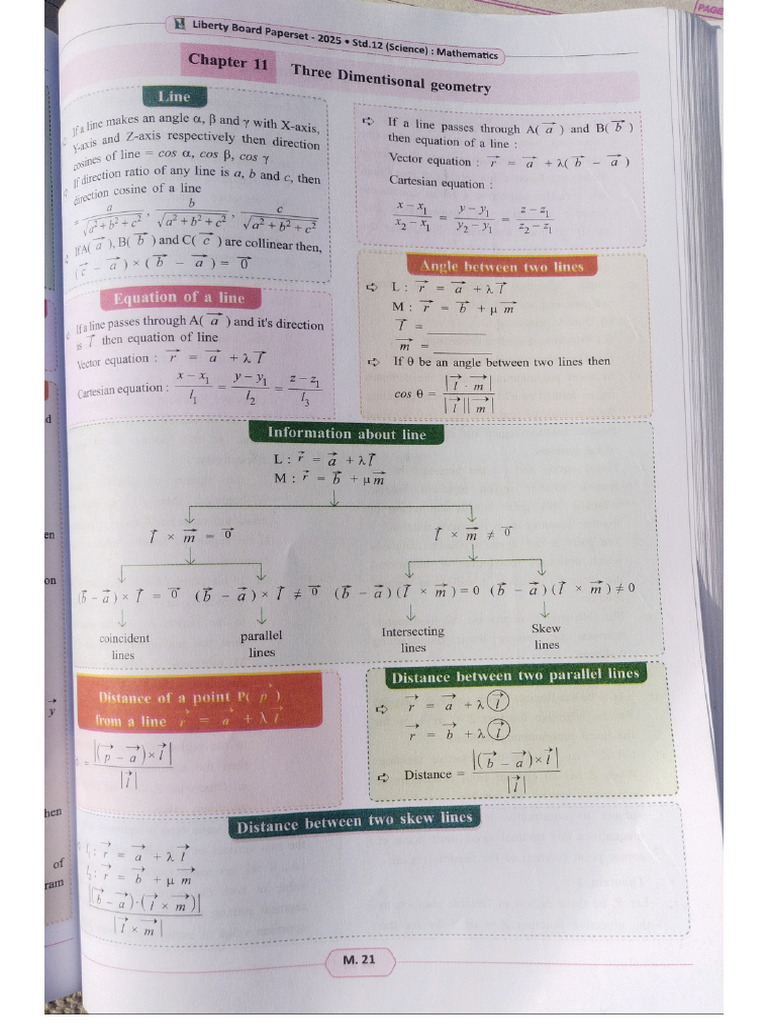 PAGE
Liberty Board Paperset - 2025 • Std.12 (Science) : Mathematics
Chapter 11 Three Dimentisonal geometry
Line
If a line makes an angle α, β and γ with X-axis,
Y-axis and Z-axis respectively then direction
cosines of line = cos α, cos β, cos γ
If direction ratio of any line is a, b and c, then
direction cosine of a line
= a/√(a² + b² + c²), b/√(a² + b² + c²), c/√(a² + b² + c²)
If A(a⃗), B(b⃗) and C(c⃗) are collinear then,
(c⃗ − a⃗) × (b⃗ − a⃗) = 0⃗
Equation of a line
If a line passes through A(a⃗) and it's direction
is l⃗ then equation of line
Vector equation : r⃗ = a⃗ + λ l⃗
Cartesian equation : (x − x₁)/l₁ = (y − y₁)/l₂ = (z − z₁)/l₃
⇨ If a line passes through A(a⃗) and B(b⃗)
then equation of a line :
Vector equation : r⃗ = a⃗ + λ(b⃗ − a⃗)
Cartesian equation :
(x − x₁)/(x₂ − x₁) = (y − y₁)/(y₂ − y₁) = (z − z₁)/(z₂ − z₁)
Angle between two lines
⇨ L : r⃗ = a⃗ + λ l⃗
M : r⃗ = b⃗ + μ m⃗
l⃗ = ________
m⃗ = ________
⇨ If θ be an angle between two lines then
cos θ = |l⃗ · m⃗| / |l⃗||m⃗|
Information about line
L : r⃗ = a⃗ + λl⃗
M : r⃗ = b⃗ + μm⃗
l⃗ × m⃗ = 0⃗ l⃗ × m⃗ ≠ 0⃗
(b⃗ − a⃗) × l⃗ = 0⃗ (b⃗ − a⃗) × l⃗ ≠ 0⃗ (b⃗ − a⃗) (l⃗ × m⃗) = 0 (b⃗ − a⃗) (l⃗ × m⃗) ≠ 0
coincident lines
parallel lines
Intersecting lines
Skew lines
Distance of a point P(p⃗)
from a line r⃗ = a⃗ + λ l⃗
= |(p⃗ − a⃗) × l⃗| / |l⃗|
Distance between two parallel lines
⇨ r⃗ = a⃗ + λ l⃗
r⃗ = b⃗ + λ l⃗
⇨ Distance = |(b⃗ − a⃗) × l⃗| / |l⃗|
Distance between two skew lines
L₁ : r⃗ = a⃗ + λ l⃗
L₂ : r⃗ = b⃗ + μ m⃗
|(b⃗ − a⃗) · (l⃗ × m⃗)| / |l⃗ × m⃗|
M. 21